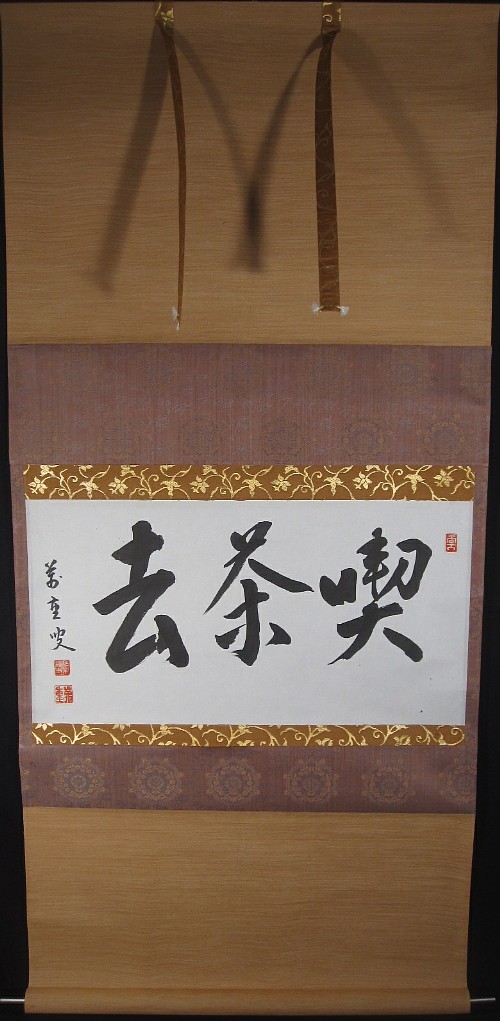 喫茶去
萬重叟